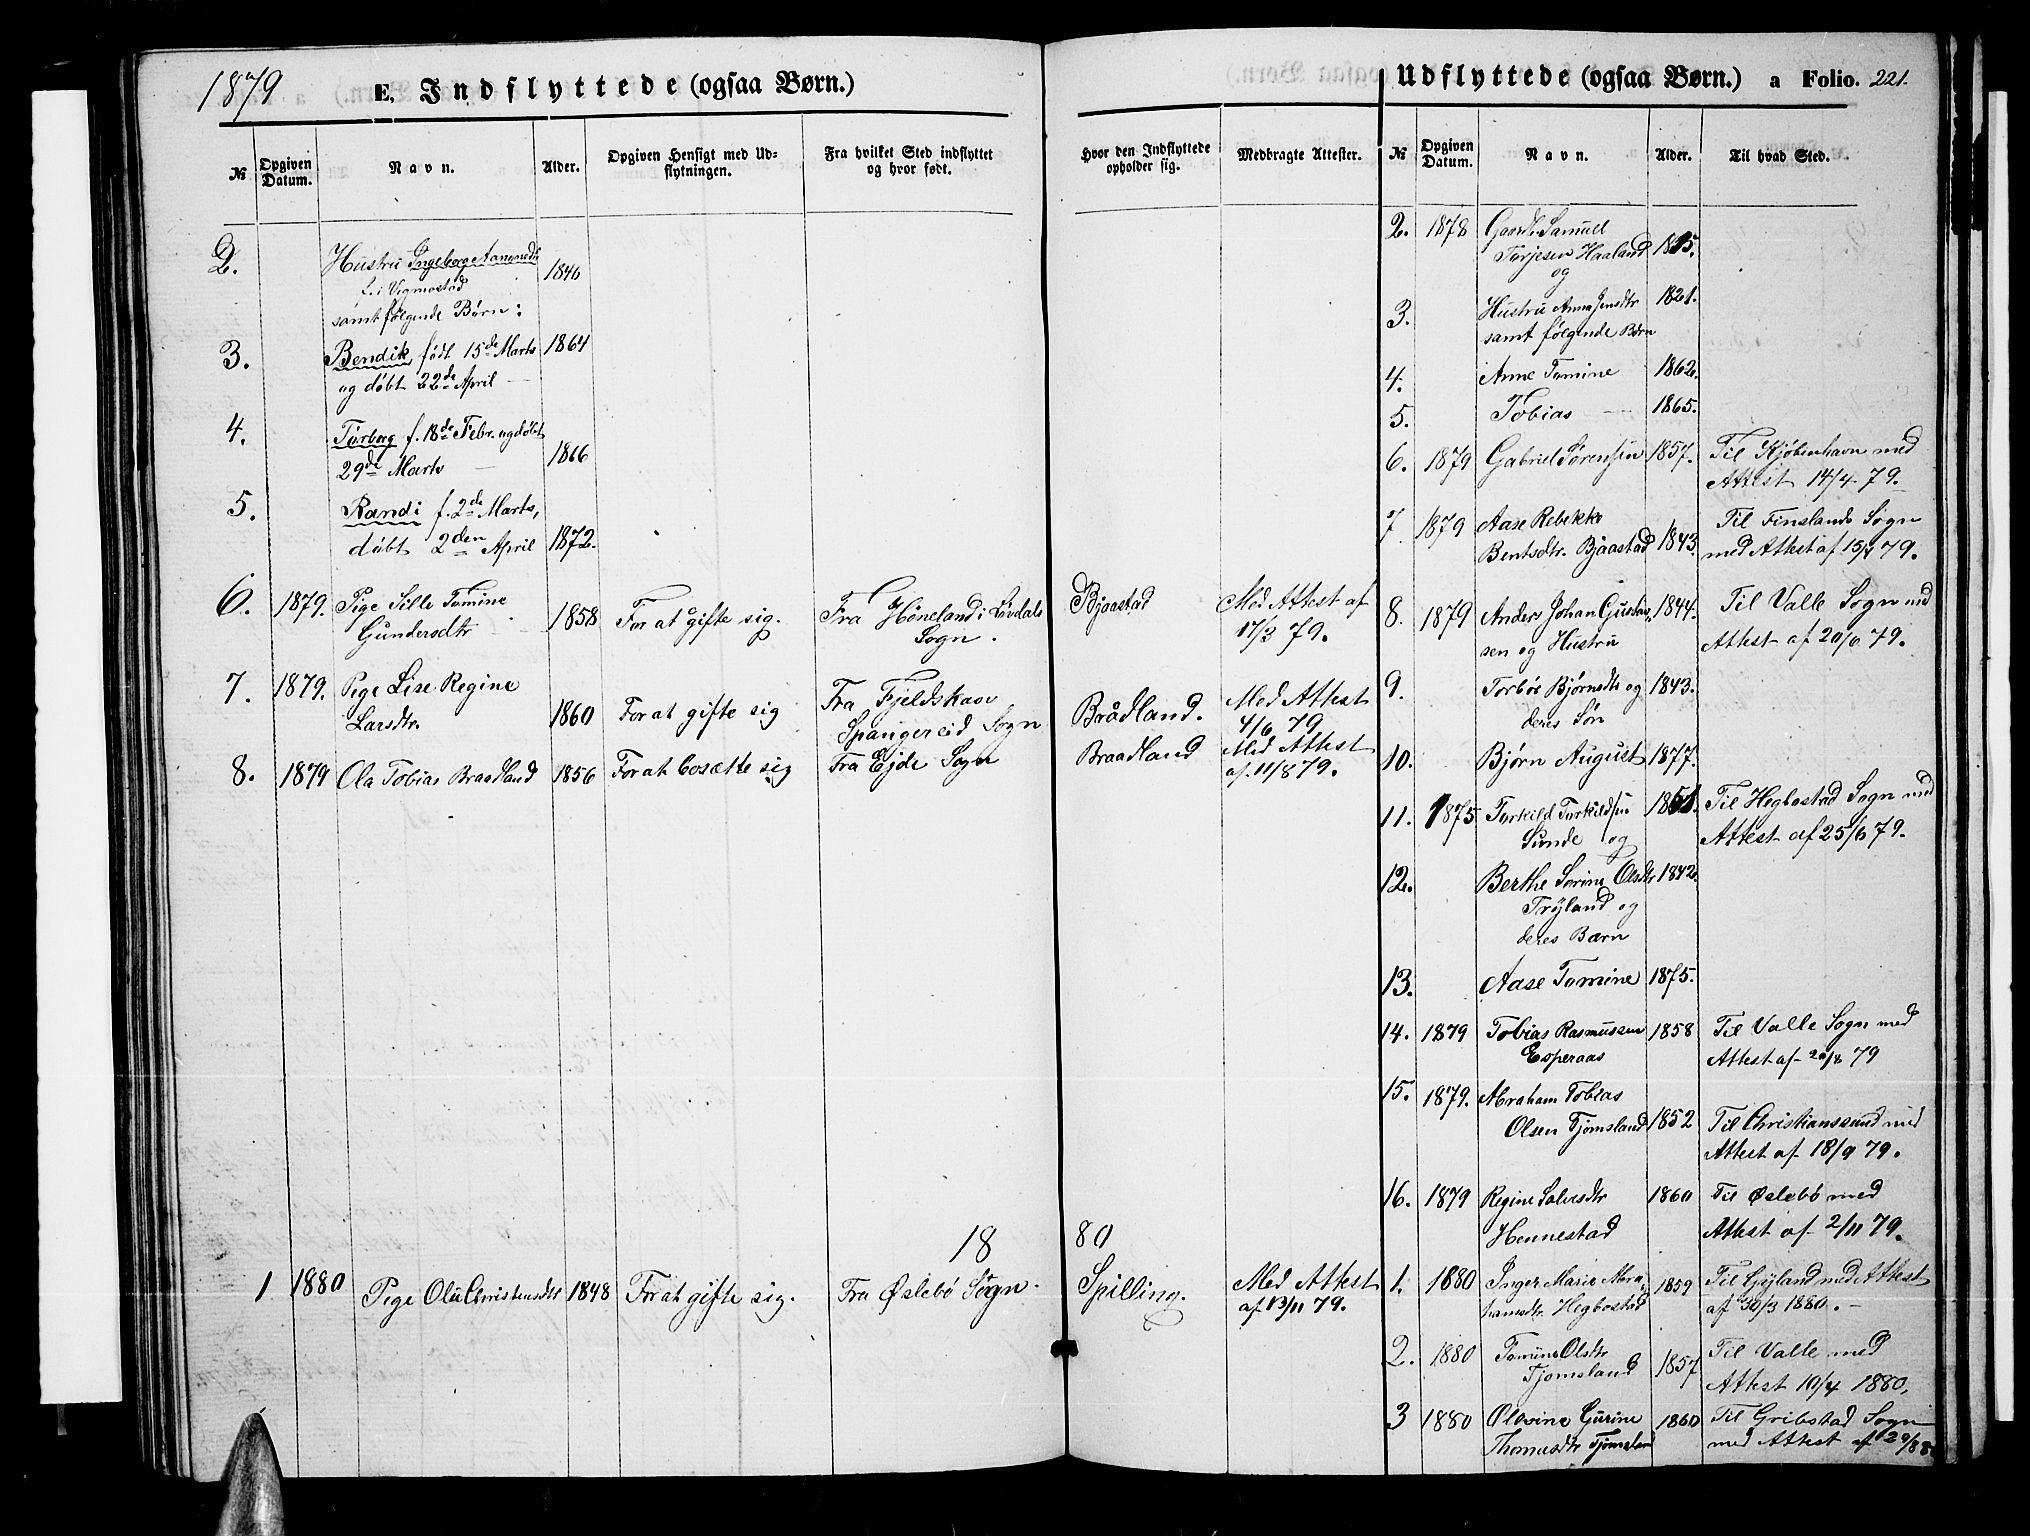 1879
E. Indflyttede (ogsaa Børn.)
№
Opgiven Datum.
Navn.
Alder.
Opgiven Hensigt med Ud-
flytningen.
Fra hvilket Sted indflyttet
og hvor født.
2.
Hustru Ingeborg Aanensdtr 1840
i Vigmostad
samt følgende Børn:
3. Bendik født 15de Marts 1864
og døbt 22de April —
4. Torborg f. 18de Febr. og døbt
29de Marts — 1866
5. Randi f. 2de Marts,
døbt 2den April 1872.
6. 1879. Pige Sille Tomine
Gundersdtr 1858 For at gifte sig. Fra Høneland i Løvdals
Sogn.
7. 1879. Pige Lise Regine
Larsdtr. 1860 For at gifte sig Fra Fjeldskaar
Spangereid Sogn
8. 1879 Ola Tobias Braadland 1856 For at bosætte sig Fra Ejde Sogn
18
1 1880 Pige Olu Christensdtr 1848 For at gifte sig. Fra Øslebø Sogn.
Hvor den Indflyttede
opholder sig.
Medbragte Attester.
Bjaastad Med Attest af
17/3 79.
Brådland. Med Attest
4/6 79
Braadland Med Attest
af 11/8 79.
80
Spilling. Med Attest
af 13/11 79.
Udflyttede (ogsaa Børn.) a Folio. 221.
№
Opgiven Datum.
Navn.
Alder.
Til hvad Sted.
2. 1878 Gaardb. Samuel
Torjesen Haaland 1815.
og
3. Hustru Anna Jensdtr 1821.
samt følgende Børn
4. Anne Tomine 1862.
5. Tobias — 1865.
6. 1879 Gabriel Sørensen 1857. Til Kjøbenhavn med
Attest 14/4 79.
7. 1879 Aase Rebekke
Bentsdtr. Bjaastad 1843. Til Finslands Sogn
med Attest af 15/4 79.
8. 1879 Anders Johan Gustav-
sen og Hustru 1844. Til Valle Sogn med
Attest af 20/6 79.
9. Torbor Bjørnsdtr og 1843.
deres Søn
10. Bjørn August 1877.
11. 1875 Torkild Torkildsen 1851. Til Hegbostad Sogn med
Sunde og Attest af 25/6 79.
12. Berthe Sorine Olsdtr 1842.
Trÿland og
deres Barn
13. Aase Tomine 1875.
14. 1879 Tobias Rasmussen 1858 Til Valle Sogn med
Esperaas Attest af 20/8 79
15. 1879. Abraham Tobias
Olsen Tjomsland 1852 Til Christianssund med
Attest af 18/9 79.
16. 1879 Regine Salvesdtr 1860 Til Øslebø med
Hennestad Attest af 2/11 79.
1. 1880 Inger Marie Abra-
hamsdtr. Hegbostad 1859 Til Gyland med Attest
af 30/3 1880. —
2. 1880 Tomine Olsdtr
Tjomsland 1857 Til Valle med
Attest 10/4 1880.
3 1880 Olevine Gurine 1860 Til Gribstad Sogn
Thomasdtr Tjomsland med Attest af 29/8 8